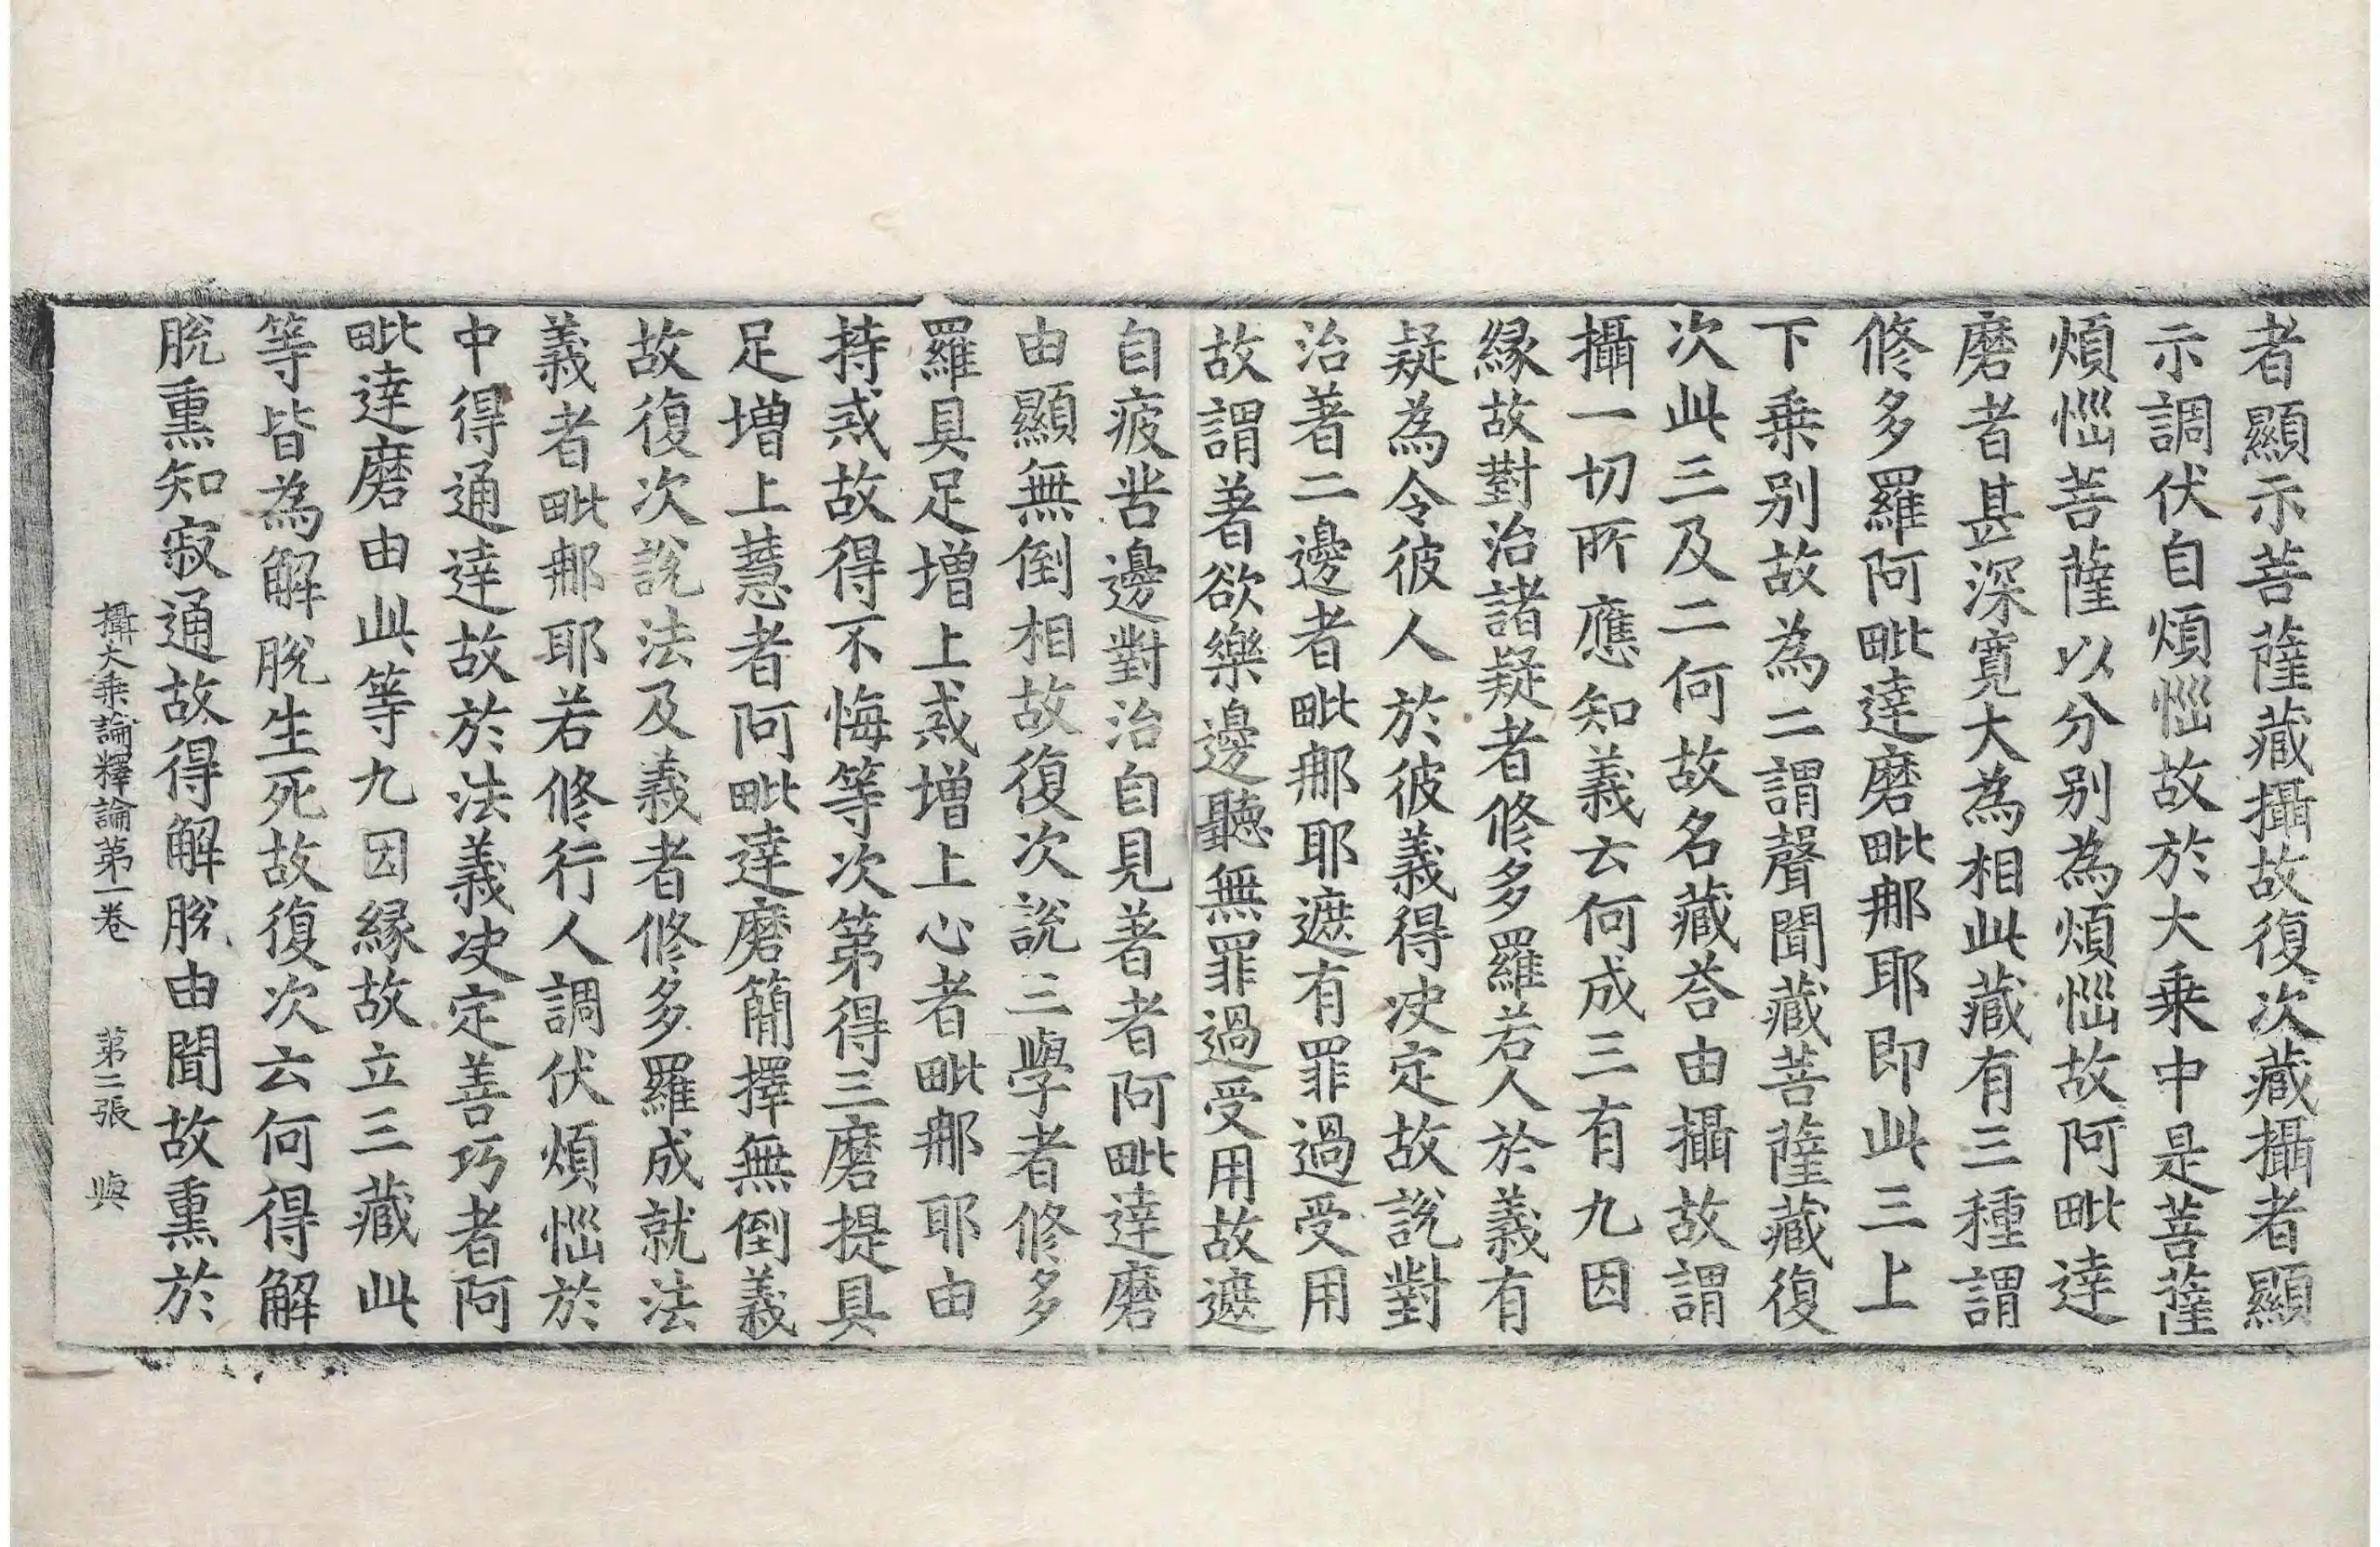 者顯示菩薩藏攝故復次藏攝者顯
示調伏自煩惱故於大乗中是菩薩
煩惱菩薩以分别為煩惱故阿毗達
磨者甚深寛大為相此藏有三種謂
修多羅阿毗達磨毗那耶即此三上
下乗别故為二謂聲聞藏菩薩藏復
次此三及二何故名藏荅由攝故謂
攝一切所應知義云何成三有九因
縁故對治諸疑者修多羅若人於義有
疑為令彼人於彼義得决定故說對
治著二邊者毗那耶遮有罪過受用
故謂著欲樂邊聽無罪過受用故遮
自疲苦邊對治自見著者阿毗達磨
由顯無倒相故復次說三學者修多
羅具足增上戒增上心者毗那耶由
持戒故得不悔等次第得三磨提具
足增上慧者阿毗達磨簡擇無倒義
故復次說法及義者修多羅成就法
義者毗那耶若修行人調伏煩惱於
中得通達故於法義决定善巧者阿
毗達磨由此等九因縁故立三藏此
等皆為解脫生死故復次云何得解
脫熏知寂通故得解脫由聞故熏於
攝大乗論釋論第一卷 第二張 與